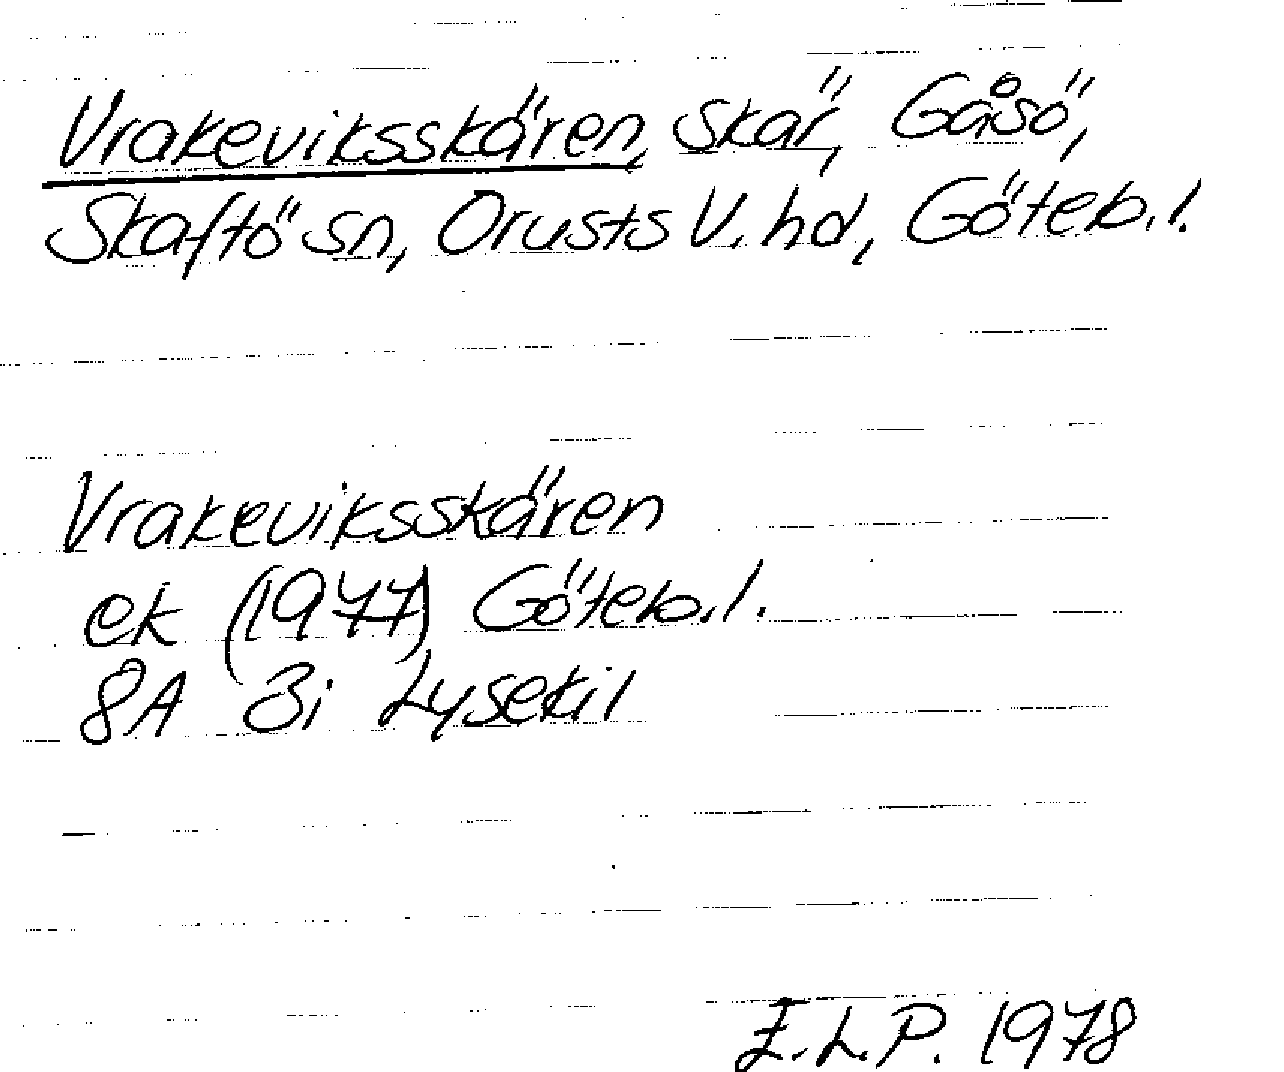 Vrakeviksskären, skär, Gåsö,
Skaftö sn, Orusts V. hd, Göteb. l.
Vrakeviksskären
ek (1977) Göteb. l.
8A 3i Lysekil
E.L.P. 1978